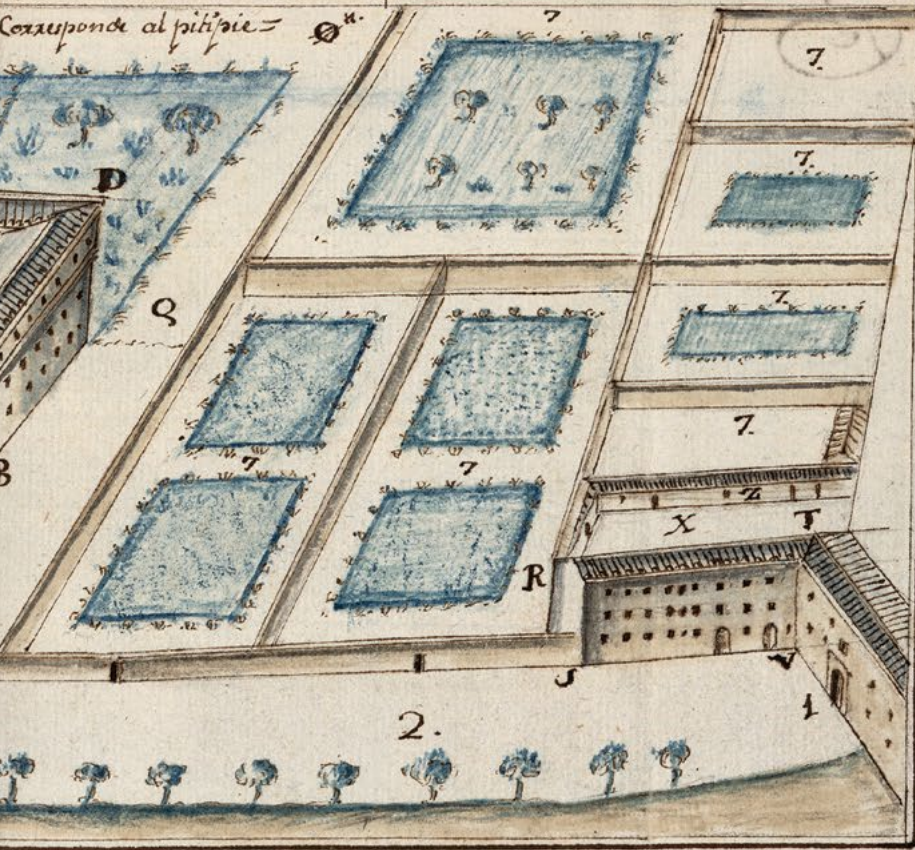 Corresponde al pitipie =
Øn.
7
7
7
D
Q
7
7
B
7
7
Z
X
T
R
S
V
1
2.